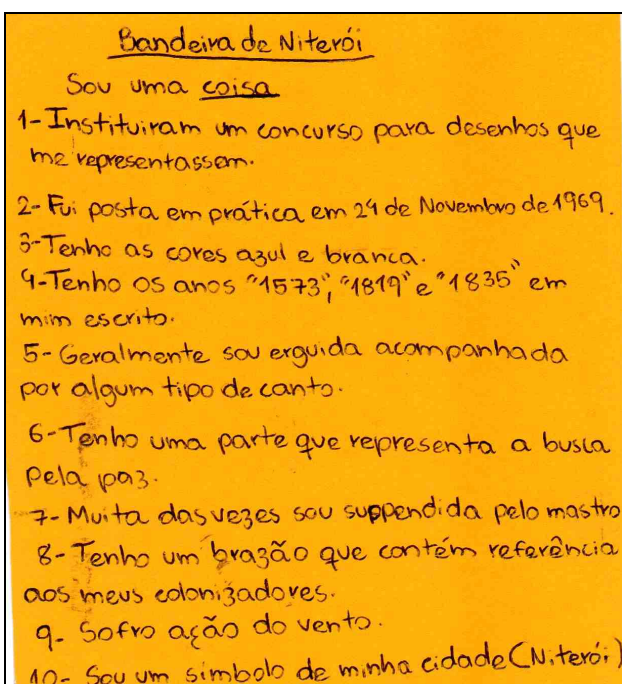 Bandeira de Niterói
Sou uma coisa
1- Instituiram um concurso para desenhos que
me representassem.
2- Fui posta em prática em 24 de Novembro de 1969.
3- Tenho as cores azul e branca.
4- Tenho os anos "1573", "1819" e "1835" em
mim escrito.
5- Geralmente sou erguida acompanhada
por algum tipo de canto.
6- Tenho uma parte que representa a busca
pela paz.
7- Muita das vezes sou suppendida pelo mastro
8- Tenho um brazão que contém referência
aos meus colonizadores.
9- Sofro ação do vento.
10- Sou um símbolo de minha cidade (Niterói)